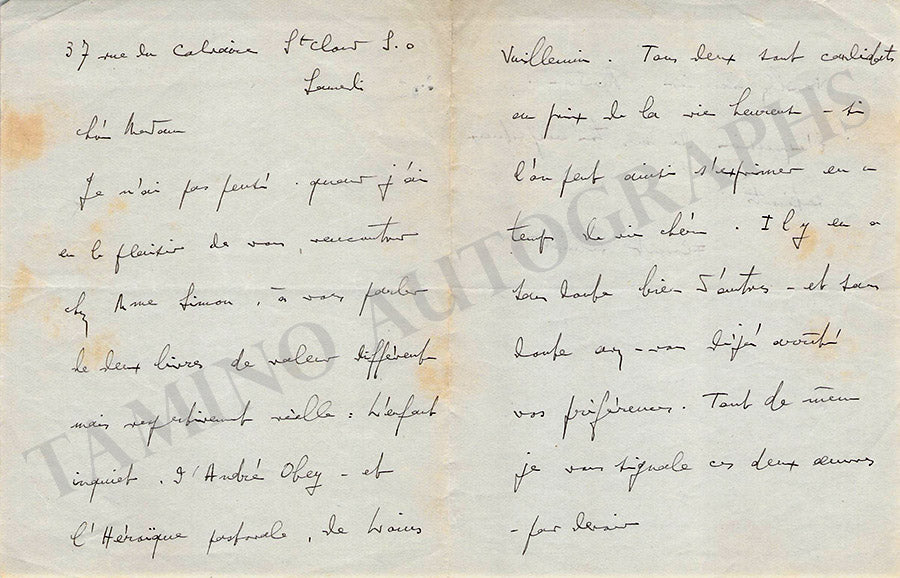 37 rue du Calvaire St Cloud S.O
Samedi
Chère Madame
Je n'ai pas pensé, quand j'ai
eu le plaisir de vous rencontrer
chez Mme Simon, à vous parler
de deux livres de valeur différente
mais respectivement réelle : L'enfant
inquiet, d'André Obey – et
l'Héroïque pastorale, de Louis
Vuillemin. Tous deux sont candidats
au prix de la vie heureuse – si
l'on peut ainsi s'exprimer en ce
temps de vie chère. Il y en a
sans doute bien d'autres – et sans
doute avez-vous déjà arrêté
vos préférences. Tout de même
je vous signale ces deux œuvres
– par devoir
TAMINO AUTOGRAPHS